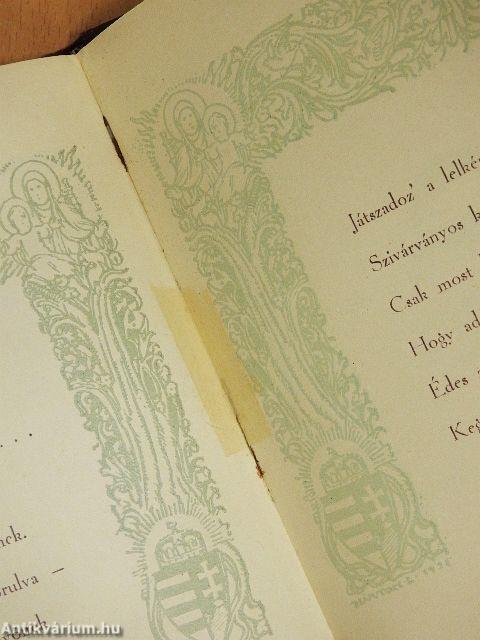 . . .
nek.
rulva –
Játszadoz' a lelké
Szivárványos k
Csak most
Hogy ad
Édes
Keg
Antikvárium.hu